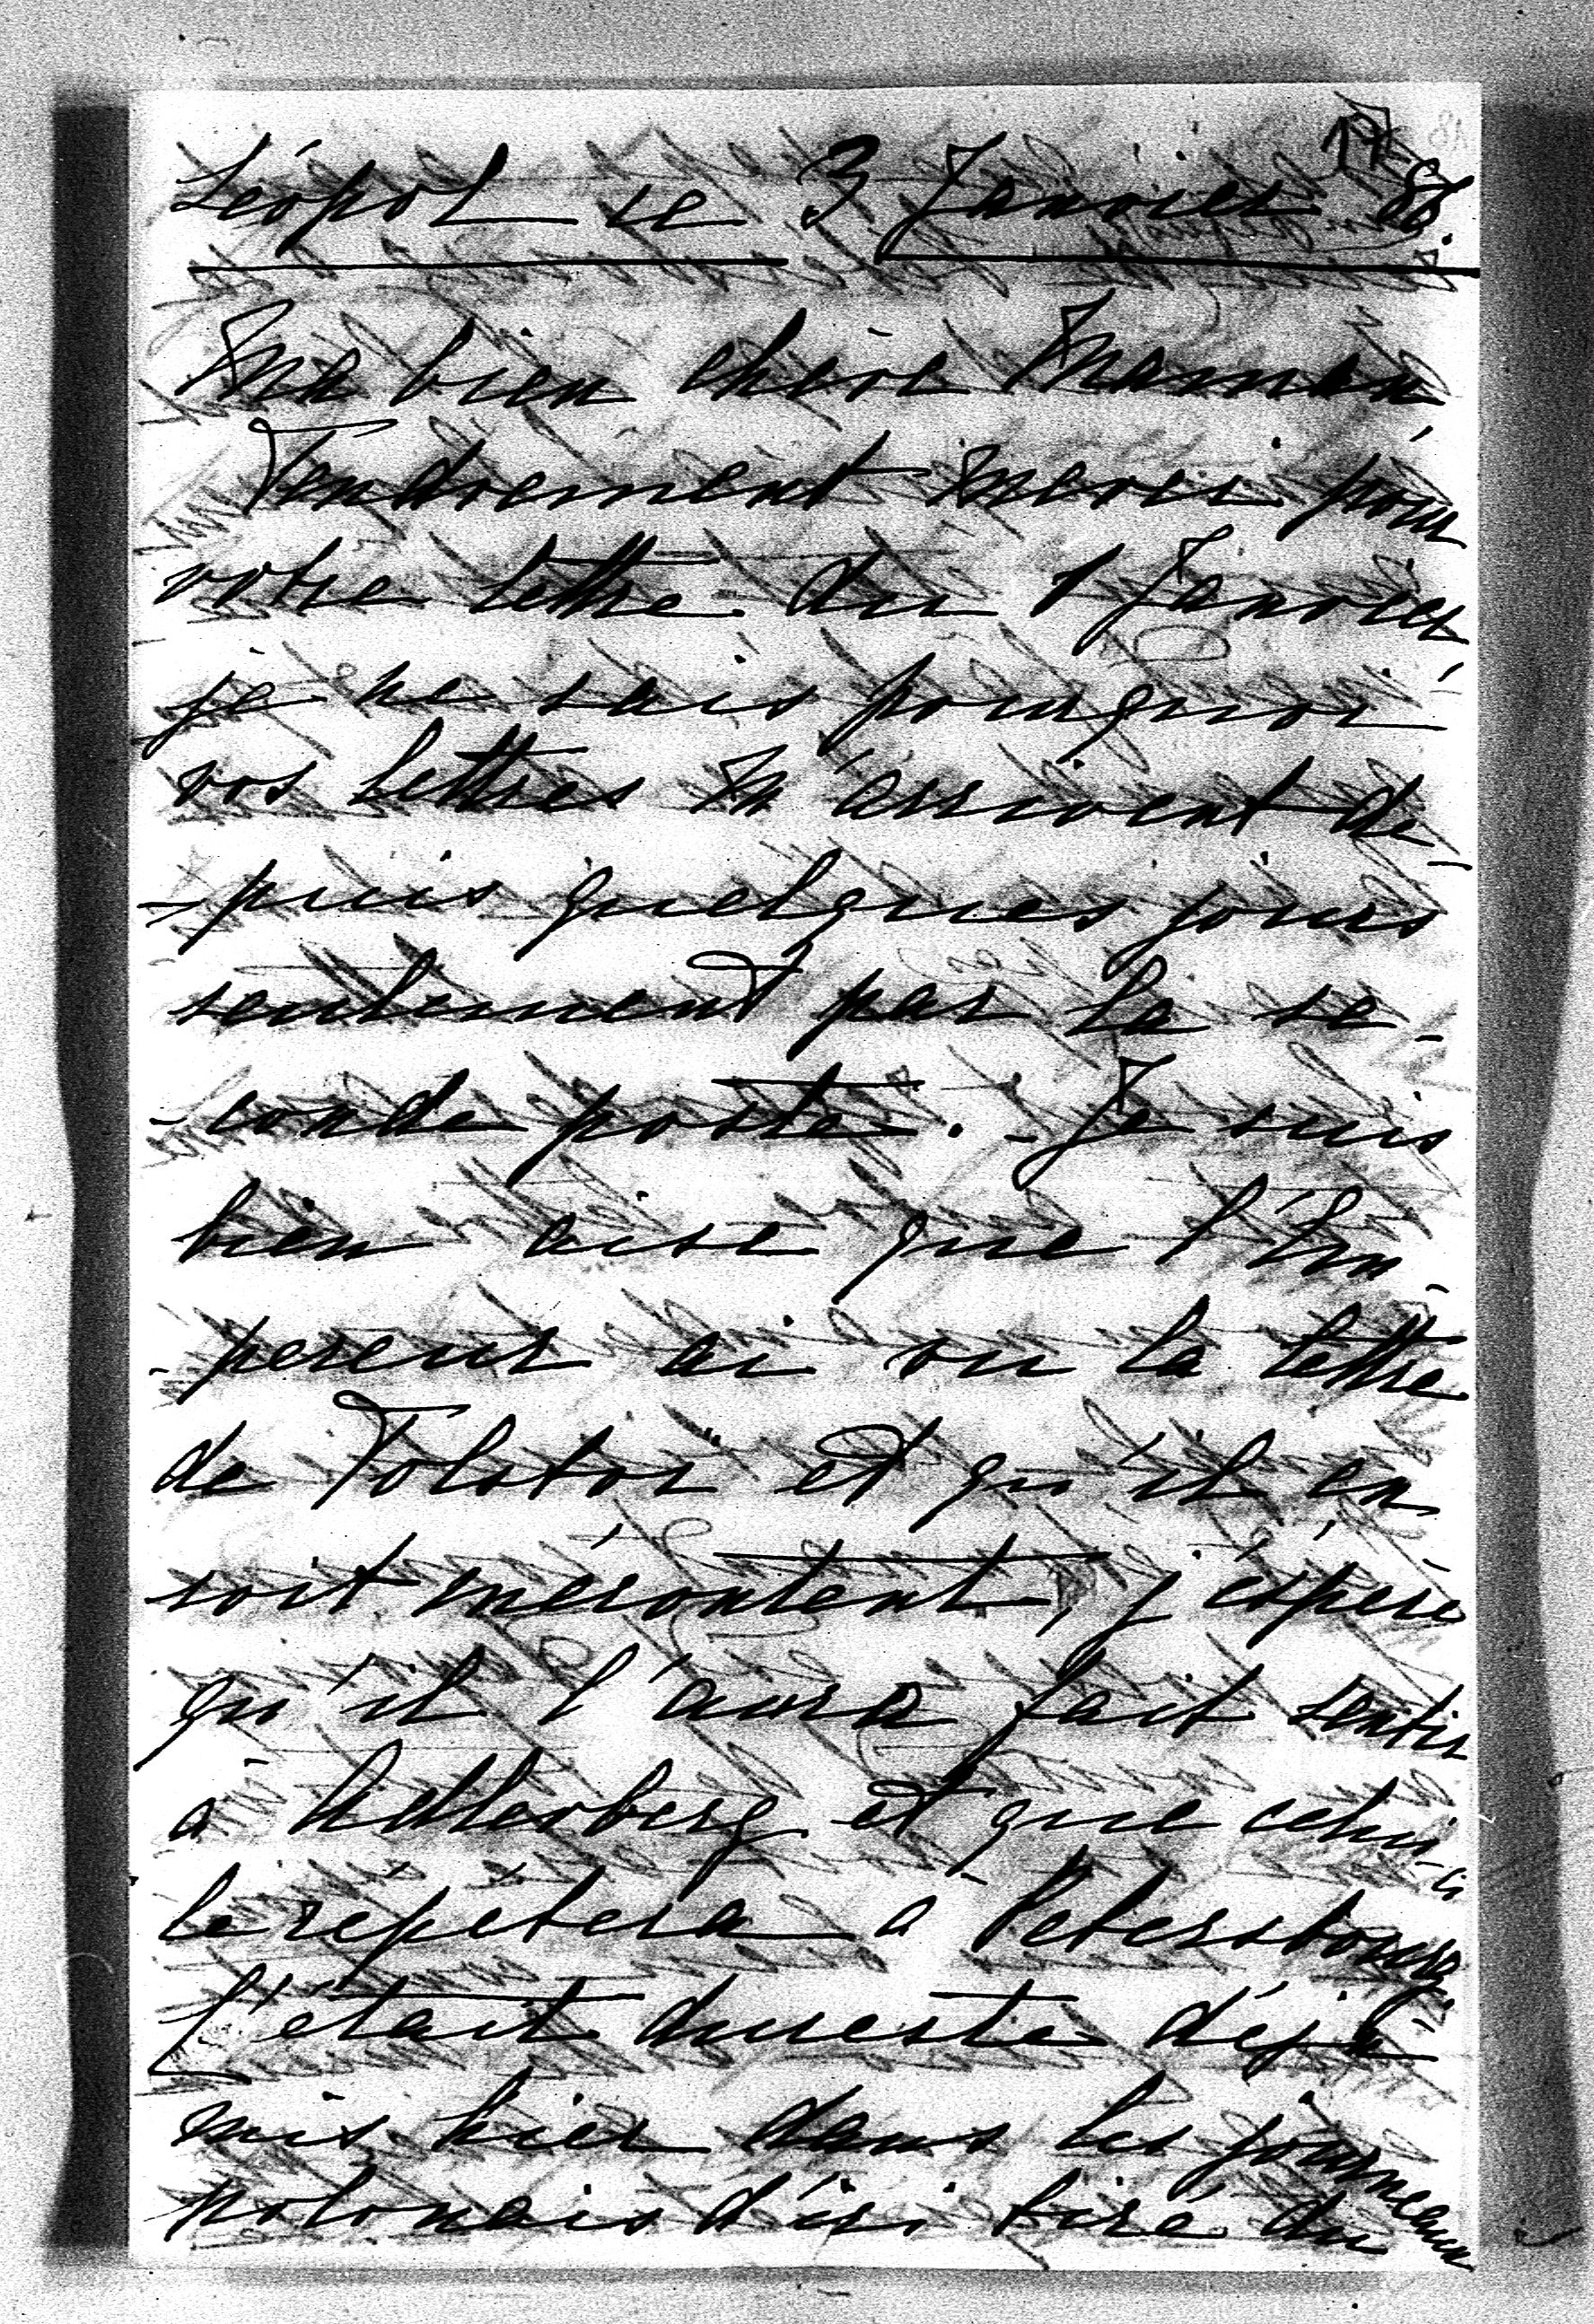 Léopol le 3 Janvier 86.
Ma bien chère Maman
Tendrement merci pour
votre lettre du 1 Janvier
je ne sais pourquoi
vos lettres m'arrivent de-
-puis quelques jours
seulement par la se-
-conde poste. - Je suis
bien aise que l'Em-
-pereur ai vu la lettre
de Tolstoï et qu'il en
soit mécontent, j'éspère
qu'il l'aura fait sentir
à Adlerberg et que celui-ci
le répetera à Petersbourg.
C'était du reste déjà
mis hier dans les journeaux
polonais d'ici tiré du